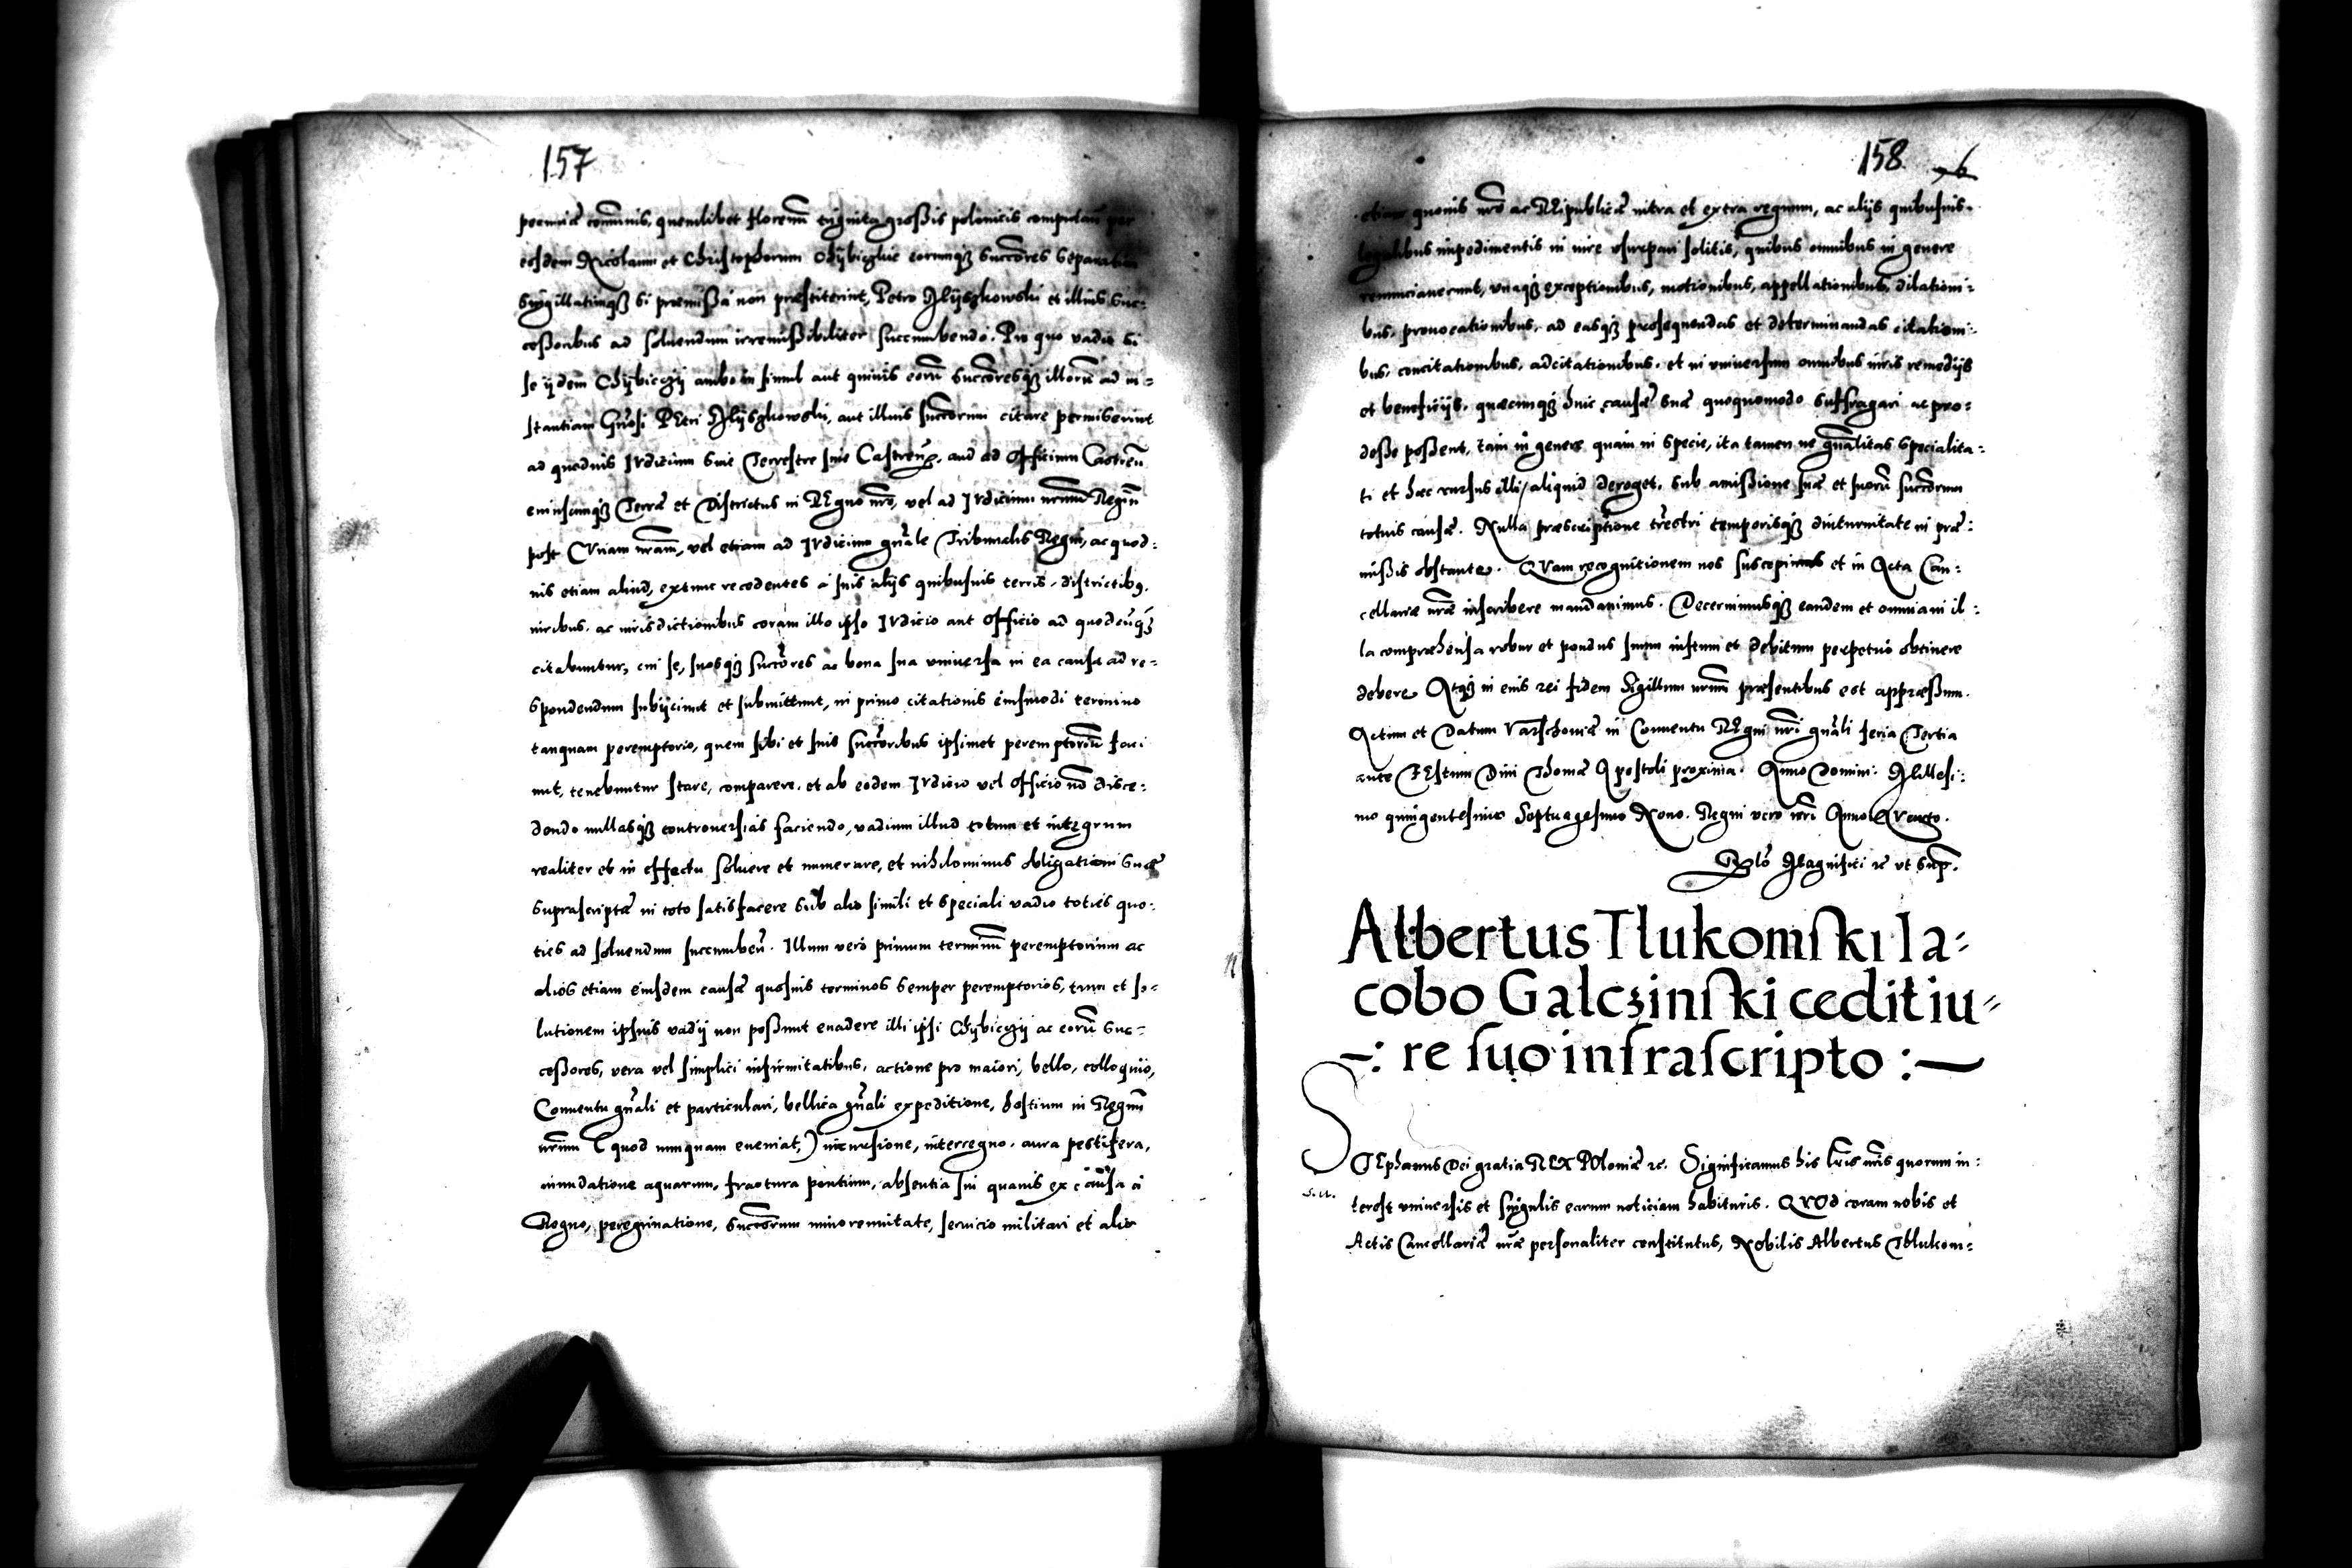 157
pecuniæ com̃unis, quemlibet florenũ triginta grossis polonicis computañ per
eosdem Nicolaum et Christophorum Chÿbiczkie eorumq₃ succores separatim
sÿgillatimq₃ si præmissa non præstiterint, Petro Mÿszkowski et illius suc-
cessoribus ad soluendum irremissibiliter succumbendo. Pro quo vadio si
se ijdem Chÿbiczÿ ambo in simul aut quiuis eorũ succoresq₃ illorũ ad in-
stantiam Gñosi PEtri Mÿszkowski, aut illius succorum citare permiserint
ad quoduis Iudicium siue Terrestre siue Castreñ, aud ad Officium Castreñ
cuiuscunq₃ Terræ et Districtus in REgno nr̃o, vel ad Iudicium nrũm Regiũ
post CUriam nram, vel etiam ad Iudicium gñale Tribunalis Regni, ac quod-
uis etiam aliud, extunc recedentes a suis alijs quibusuis terris, districtib₉,
iuribus, ac iurisdictionibus coram illo ipso Iudicio aut Officio ad quodcũq₃
citabuntur, cui se, suosq₃ succores ac bona sua vniuersa in ea causa ad re-
spondendum subijciunt et submittunt, in primo citationis eiusmodi termino
tanquam peremptorio, quem sibi et suis succoribus ipsimet peremptoriũ faci
unt, tenebuntur stare, comparere, et ab eodem Iudicio vel Officio nõ disce-
dendo nullasq₃ controuersias faciendo, vadium illud totum et integrum
realiter et in effectu soluere et numerare, et nihilominus obligationi suæ
suprascriptæ in toto satisfacere sub alio simili et speciali vadio toties quo-
ties ad soluendum succumbeñ. Illum vero primum terminũ peremptorium ac
alios etiam eiusdem causæ quosuis terminos semper peremptorios, tum et so-
lutionem ipsius vadij non possunt euadere illi ipsi Chÿbiczÿ ac eorũ suc-
cessores, vera vel simplici infirmitatibus, actione pro maiori, bello, colloquio,
Conuentu gñali et particulari, bellica gñali expeditione, hostium in Regnũ
nrũm (quod nunquam eueniat,) incursione, interregno, aura pestifera,
inundatione aquarum, fractura pontium, absentia sui quauis ex causa a
Regno, peregrinatione, succorum minorennitate, seruicio militari et alio
158
etiam quouis nr̃o ac REipublicæ intra et extra regnum, ac alijs quibusuis
legalibus impedimentis in iure vsurpari solitis, quibus omnibus in genere
renunciauerunt, vnaq₃ exceptionibus, motionibus, appellationibus, dilationi-
bus, prouocationibus, ad easq₃ prosequendas et determinandas citationi-
bus, concitationibus, adcitationibus, et in vniuersum omnibus iuris remedijs
et beneficijs, quæcunq₃ huic causæ suæ quoquomodo suffragari ac pro-
desse possent, tam in genere quam in specie, ita tamen ne gñalitas specialita-
ti et hæc rursus illi aliquid deroget, sub amissione suæ et suorũ succorum
totius causæ. Nulla præscriptione tr̃estri temporisq₃ diuturnitate in præ-
missis obstante. QVam recognitionem nos suscepimus et in Acta Can-
cellariæ nræ inscribere mandauimus. Decernimusq₃ eandem et omnia in il-
la compræhensa robur et pondus suum iustum et debitum perpetuo obtinere
debere. Atq₃ in eius rei fidem Sigillum nrũm præsentibus est appræssum.
Actum et Datum Varschouiæ in Conuentu REgni nrĩ gñali feria Tertia
ante FEstum Diui Thomæ Apostoli proxima. Anno Domini Millesi-
mo quingentesimo Septuagesimo Nono. Regni vero nrĩ Anno Quarto.
Rlõ Magnifici ꝛc vt sup̃.
Albertus Tlukomſki Ia-
cobo Galczinſki cedit iu-
-: re ſuo infraſcripto :—
STEphanus Dei gratia REX POloniæ ꝛc. Significamus his lr̃is nr̃is quorum in-
terest vniuersis et singulis earum noticiam habituris. QVOd coram nobis et
Actis Cancellariæ nræ personaliter constitutus, Nobilis Albertus Thlukom-